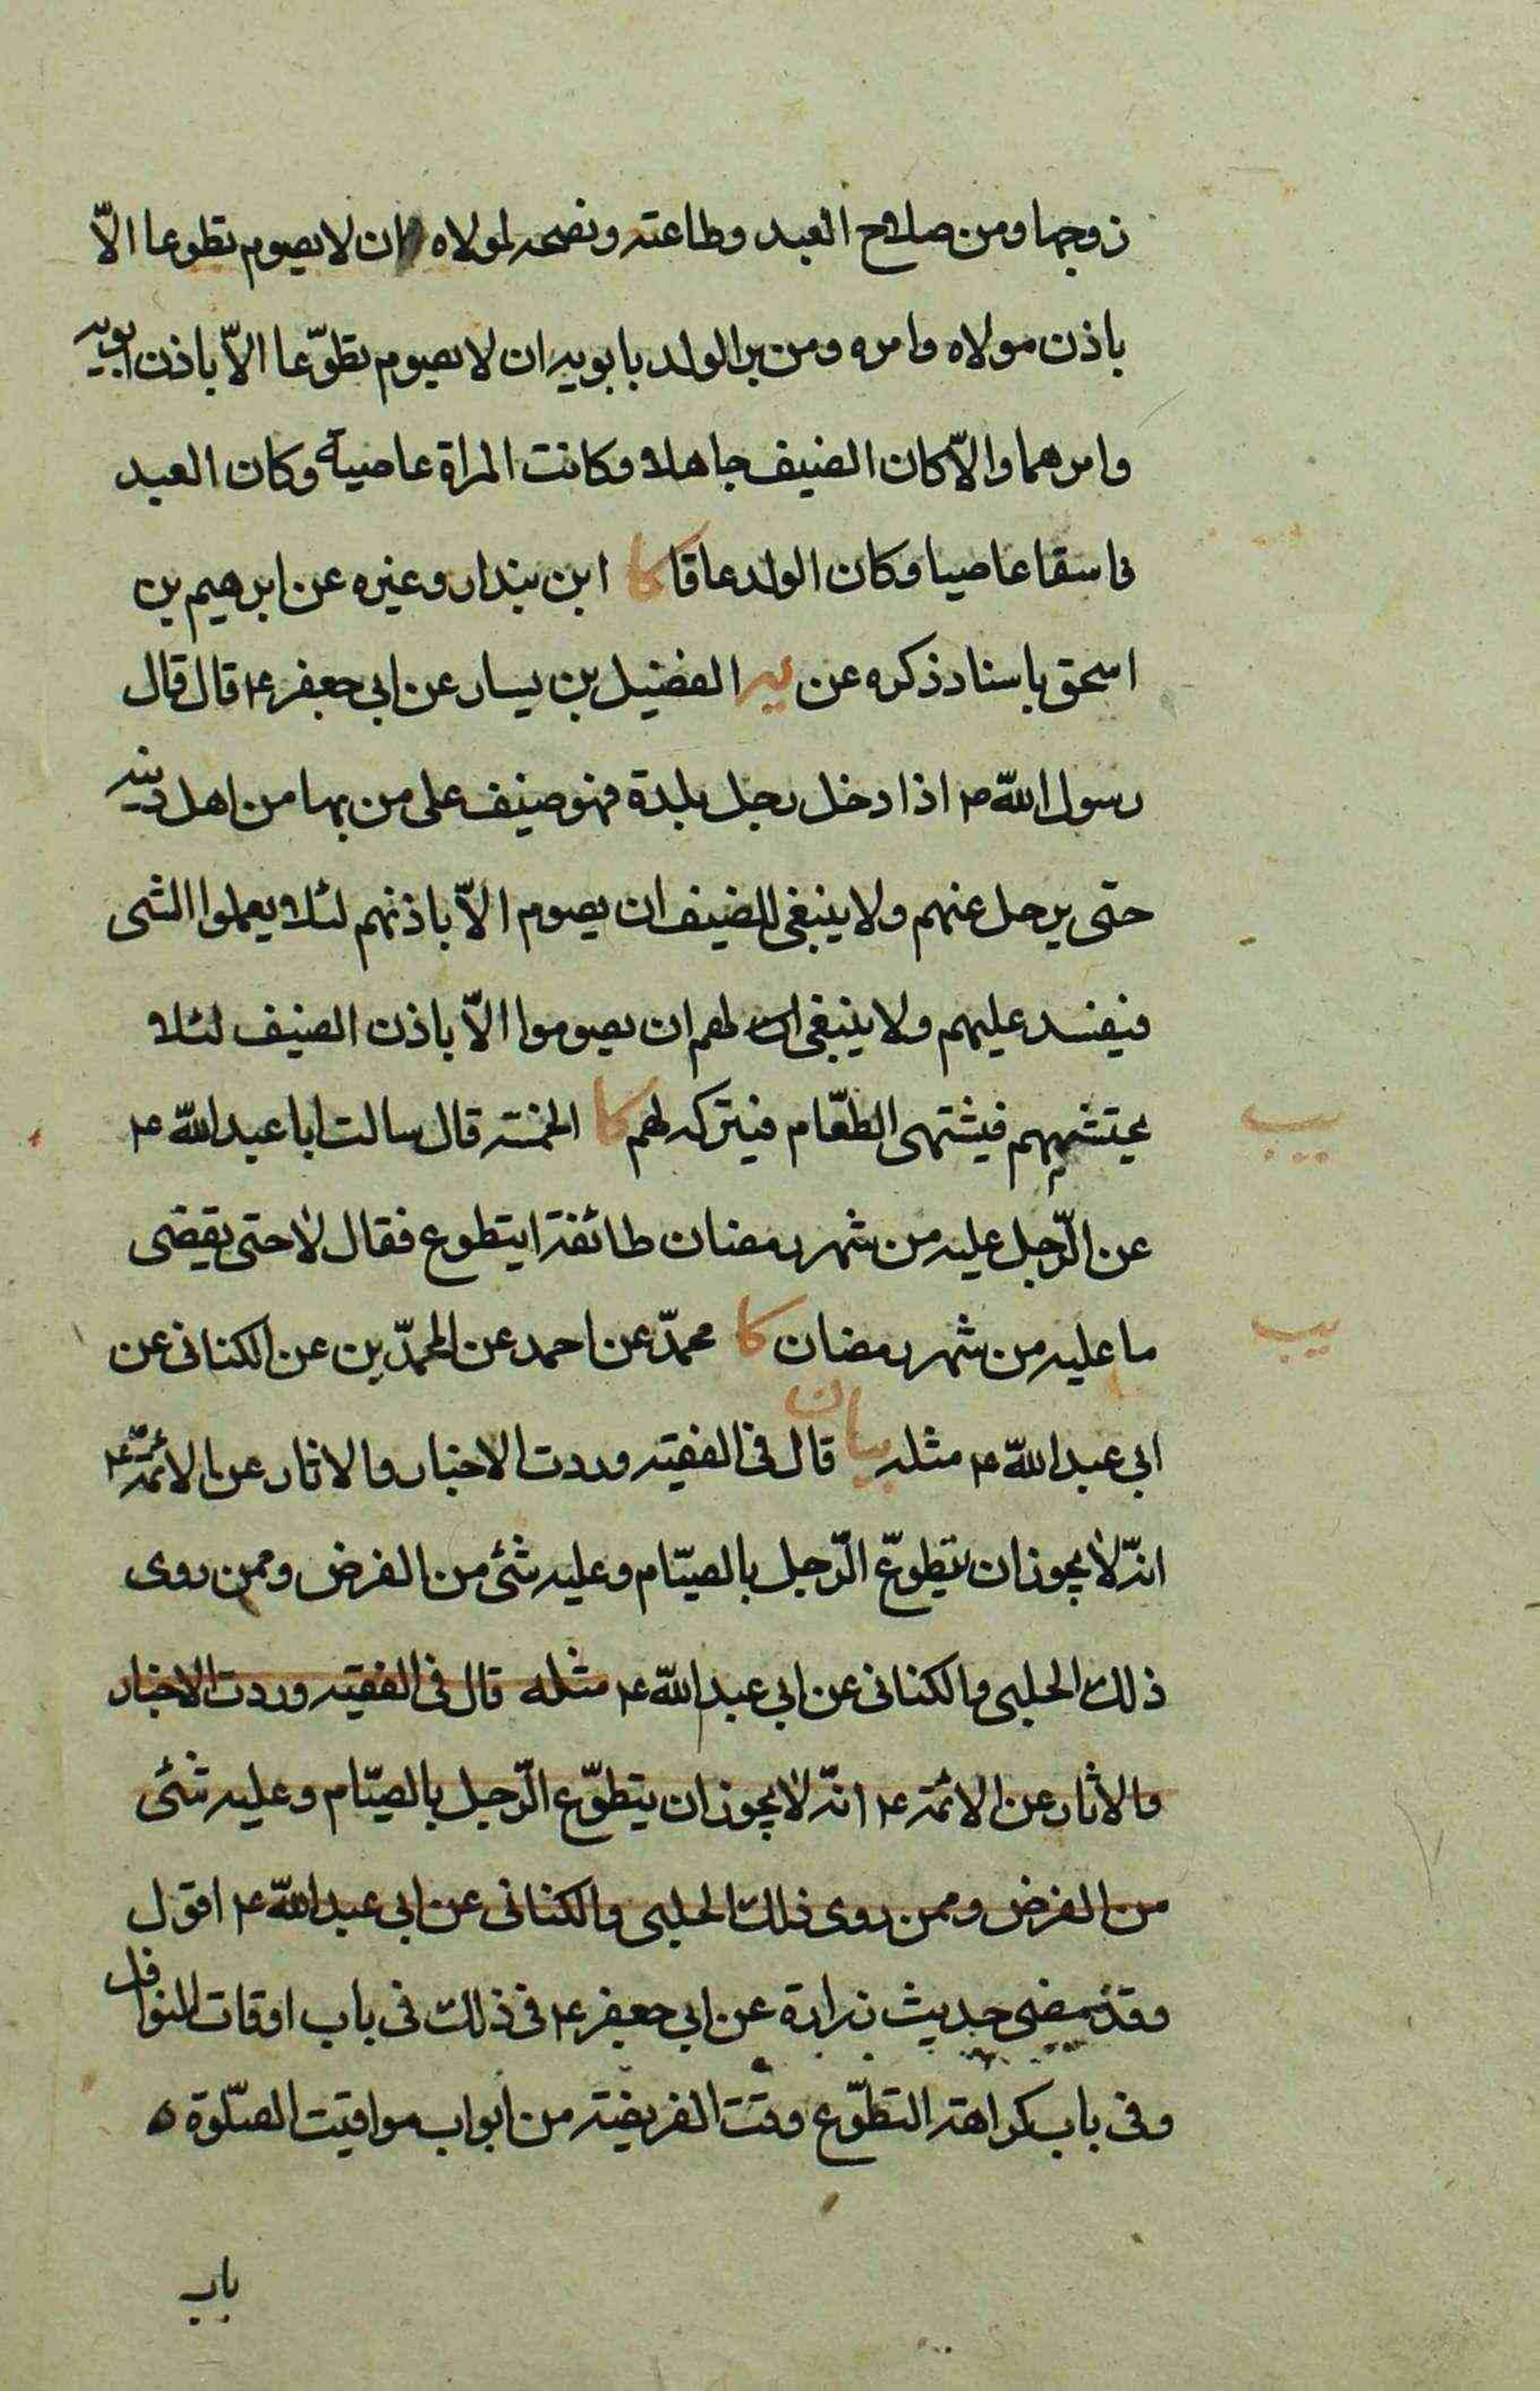 زوجها ومن صلاح العبد وطاعته ونصحه لمولاه ان لا يصوم تطوعا الاّ
باذن مولاه وامره ومن بر الولد بابويه ان لا يصوم تطوّعا الاّ باذن ابويه
وامرهما والاّ كان الضيف جاهلا وكانت المراة عاصية وكان العبد
فاسقا عاصيا وكان الولد عاقا كا ابن بندار وغيره عن ابرهيم بن
اسحق باسناد ذكره عن يه الفضيل بن يسار عن ابي جعفر ع قال قال
رسول اللّه ص اذا دخل رجل بلدة فهو ضيف على من بها من اهل دينه
حتى يرحل عنهم ولا ينبغى للضيف ان يصوم الاّ باذنهم لئلا يعملوا الشى
فيفسد عليهم ولا ينبغى لهم ان يصوموا الاّ باذن الضيف لئلا
يحتشمهم فيشتهى الطعّام فيتركه لهم كا الخمسة قال سالت ابا عبد اللّه ع
يب
عن الرّجل عليه من شهر رمضان طائفة ايتطوع فقال لا حتى يقضى
ما عليه من شهر رمضان كا محمدّ عن احمد عن المحمدّين عن الكنانى عن
يب
ابي عبد اللّه ع مثله بيان قال فى الفقيه وردت الاخبار والاثار عن الائمّة ع
انّه لا يجوز ان يتطوّع الرّجل بالصيّام وعليه شئ من الفرض وممن روى
ذلك الحلبى والكنانى عن ابي عبد اللّه ع مثله قال فى الفقيه وردت الاخبار
والاثار عن الائمة ع انّه لا يجوز ان يتطوّع الرّجل بالصيّام وعليه شئى
من الفرض وممن روى ذلك الحلبى والكنانى عن ابي عبد اللّه ع اقول
وقد مضى حديث زرارة عن ابي جعفر ع فى ذلك فى باب اوقات النوافل
وفى باب كراهة التطوّع وقت الفريضة من ابواب مواقيت الصّلوة ه
باب